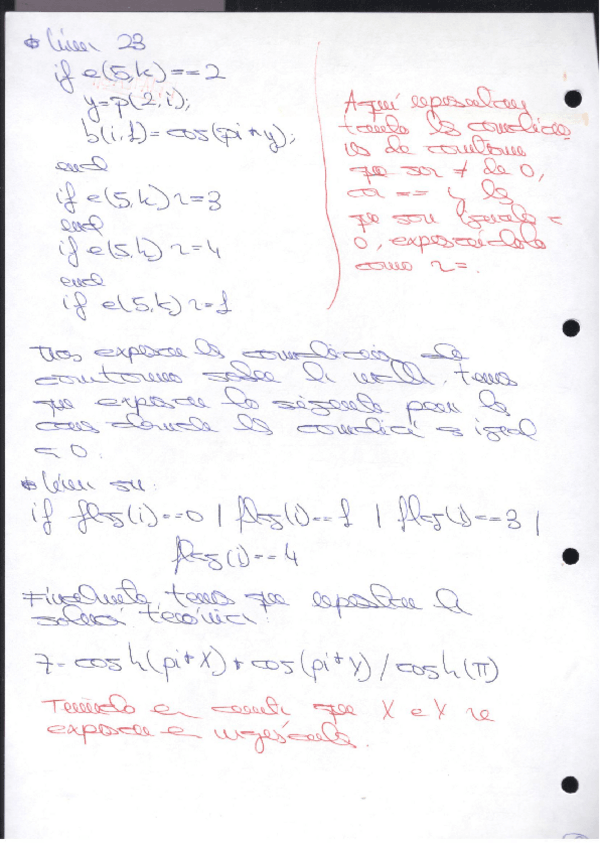 línea 23
if e(5,k)==2
y=p(2,i);
b(i,1)=cos(pi*y);
end
if e(5,k)~=3
end
if e(5,k)~=4
end
if e(5,k)~=1
Aquí
las condicio
nes de contorno
que son ≠ de 0,
con == y las
que son iguales a
0,
como ~=.
Tras las condiciones de
contorno sobre la malla, tenemos
que lo siguiente para los
casos donde la condición es igual
a 0.
línea
if flag(i)==0 | flag(i)==1 | flag(i)==3 |
flag(i)==4
Finalmente, tenemos que la
solución teórica:
Z=cosh(pi*X)*cos(pi*Y)/cosh(π)
Teniendo en cuenta que X e Y se
en mayúscula.